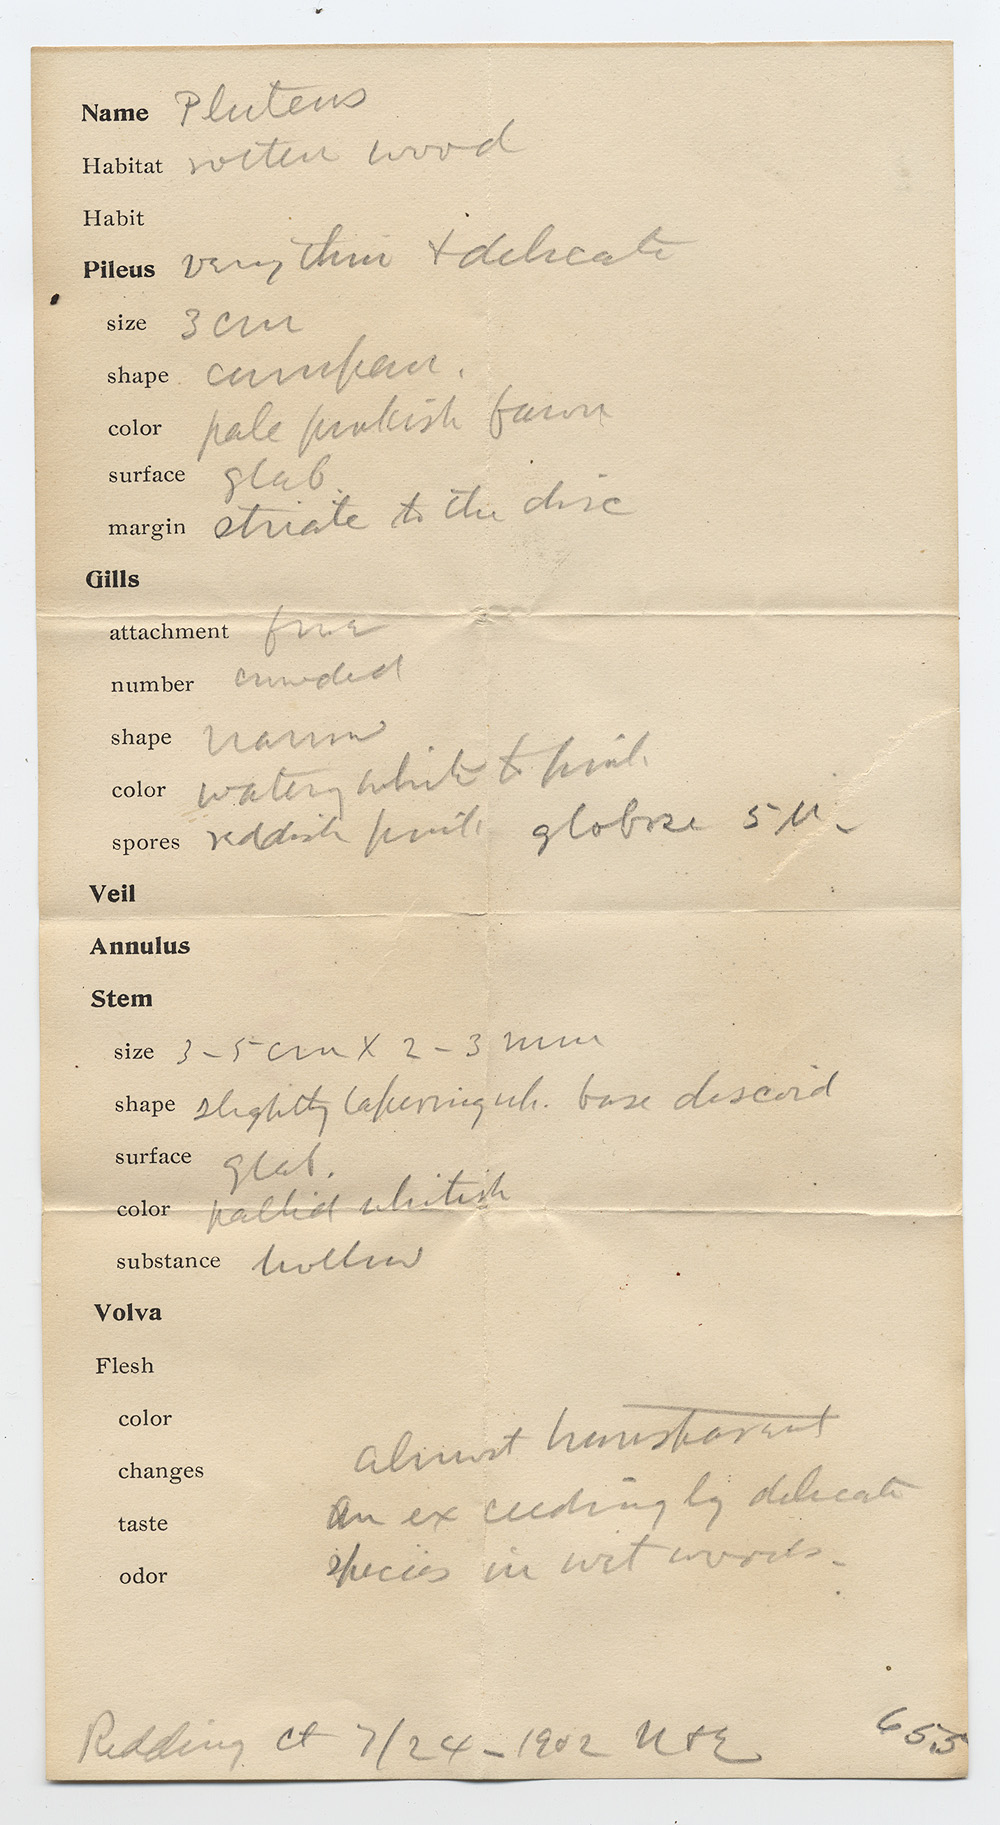 Name Pluteus
Habitat rotten wood
Habit
Pileus very thin + delicate
size 3 cm
shape campan.
color pale pinkish fawn
surface glab.
margin striate to the disc
Gills
attachment free
number crowded
shape narrow
color watery white to pink
spores reddish pink globose 5 µ -
Veil
Annulus
Stem
size 3-5 cm X 2-3 mm
shape slightly tapering up. base discoid
surface glab.
color pallid whitish
substance hollow
Volva
Flesh
color
changes almost transparent
taste An exceedingly delicate
odor species in wet woods -
Redding Ct 7/24-1902 655